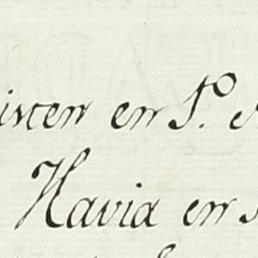 isten en S.º
Havia en